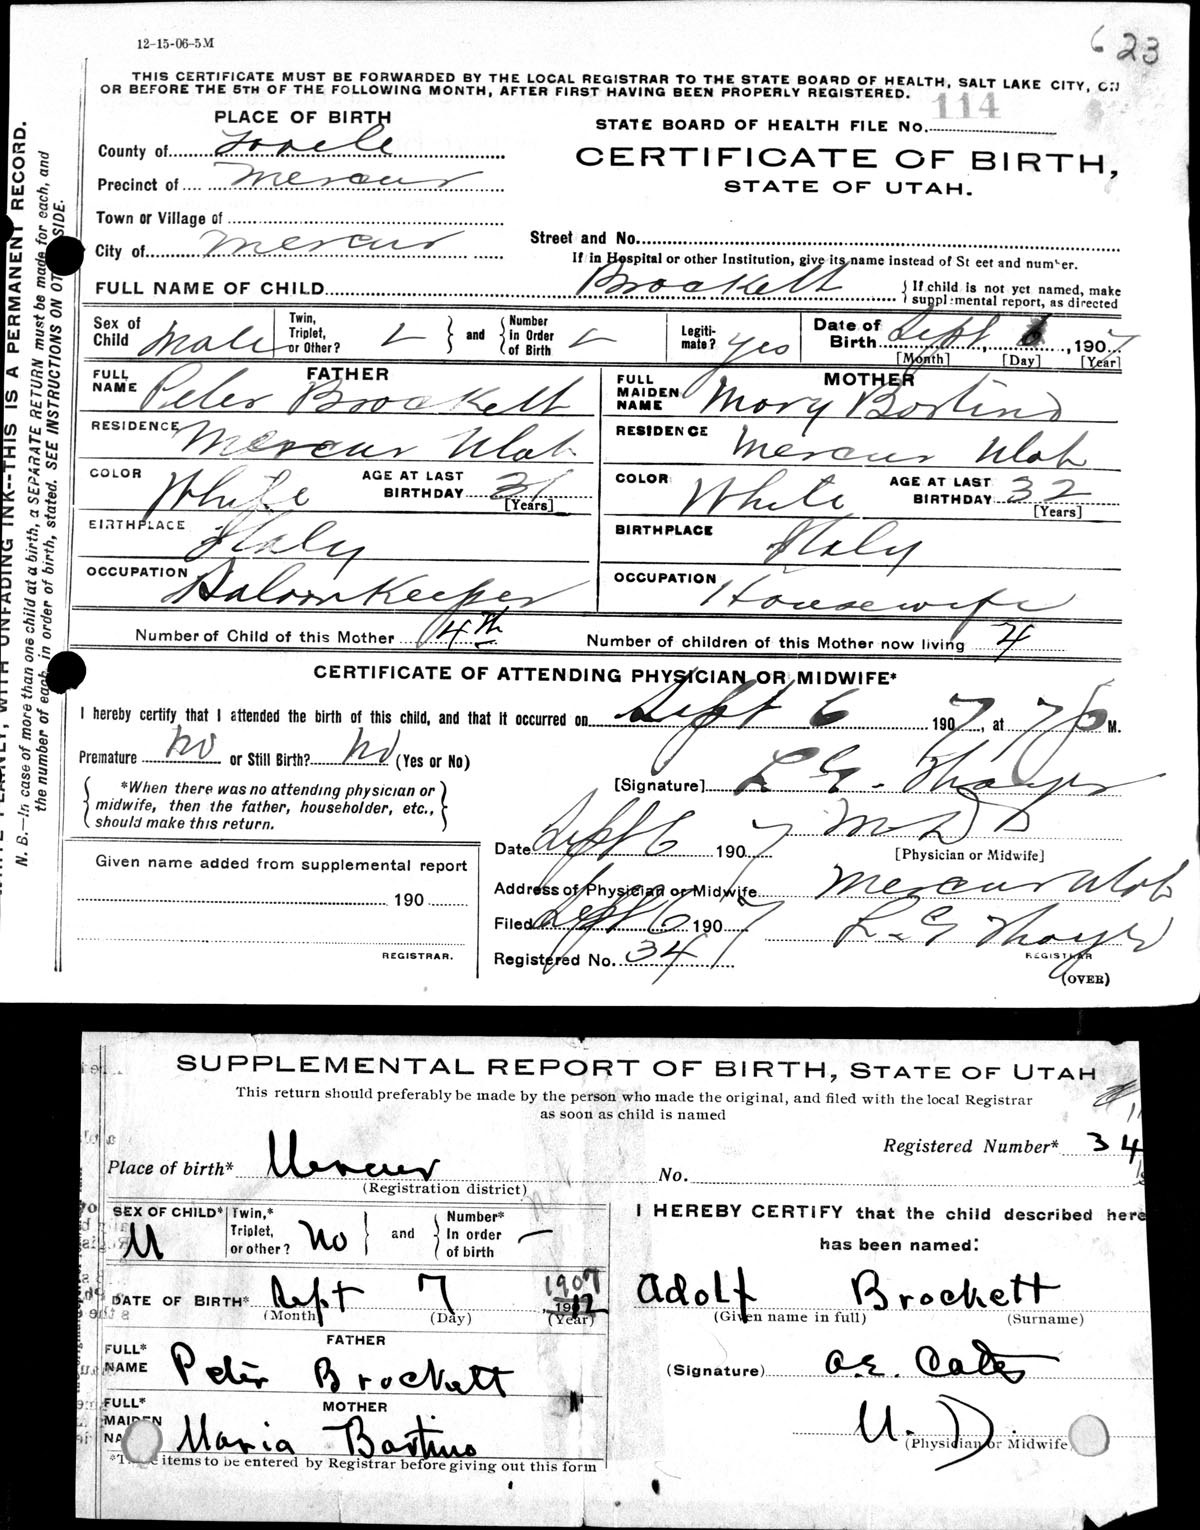 12-15-06-5M
6 23
THIS CERTIFICATE MUST BE FORWARDED BY THE LOCAL REGISTRAR TO THE STATE BOARD OF HEALTH, SALT LAKE CITY, ON
OR BEFORE THE 5TH OF THE FOLLOWING MONTH, AFTER FIRST HAVING BEEN PROPERLY REGISTERED.
114
PLACE OF BIRTH
STATE BOARD OF HEALTH FILE No.
County of Tooele
CERTIFICATE OF BIRTH,
STATE OF UTAH.
Precinct of Mercur
Town or Village of
City of Mercur
Street and No.
If in Hospital or other Institution, give its name instead of Street and number.
FULL NAME OF CHILD Brockett
{ If child is not yet named, make
supplemental report, as directed
Sex of Child Male
Twin, Triplet, or Other?
and
Number in Order of Birth
Legitimate? yes
Date of Birth Sept 6, 1907
[Month] [Day] [Year]
FATHER
FULL NAME Peter Brockett
RESIDENCE Mercur Utah
COLOR White
AGE AT LAST BIRTHDAY 31
[Years]
BIRTHPLACE Italy
OCCUPATION Saloon Keeper
MOTHER
FULL MAIDEN NAME Mary Bostino
RESIDENCE Mercur Utah
COLOR White
AGE AT LAST BIRTHDAY 32
[Years]
BIRTHPLACE Italy
OCCUPATION Housewife
Number of Child of this Mother 4th
Number of children of this Mother now living 4
CERTIFICATE OF ATTENDING PHYSICIAN OR MIDWIFE*
I hereby certify that I attended the birth of this child, and that it occurred on Sept 6 1907, at 7 M.
Premature No or Still Birth? No (Yes or No)
*When there was no attending physician or
midwife, then the father, householder, etc.,
should make this return.
[Signature] L G. Thayer
M D
[Physician or Midwife]
Date Sept 6 1907
Address of Physician or Midwife Mercur Utah
Filed Sept 6 1907
L. G Thayer
REGISTRAR
Registered No. 34
(OVER)
Given name added from supplemental report
190
REGISTRAR.
WRITE PLAINLY, WITH UNFADING INK--THIS IS A PERMANENT RECORD.
N. B.—In case of more than one child at a birth, a SEPARATE RETURN must be made for each, and
the number of each, in order of birth, stated. SEE INSTRUCTIONS ON OTHER SIDE.
SUPPLEMENTAL REPORT OF BIRTH, STATE OF UTAH
This return should preferably be made by the person who made the original, and filed with the local Registrar
as soon as child is named
Registered Number* 34
Place of birth* Mercur
No.
(Registration district)
SEX OF CHILD* M
Twin,* Triplet, or other? No
and
Number* In order of birth —
DATE OF BIRTH* Sept 7 1907
1912
(Month) (Day) (Year)
FATHER
FULL* NAME Peter Brockett
MOTHER
FULL* MAIDEN NAME Maria Bostino
*These items to be entered by Registrar before giving out this form
I HEREBY CERTIFY that the child described here
has been named:
Adolf Brockett
(Given name in full) (Surname)
(Signature) O.E. Cates
M. D.
(Physician or Midwife)